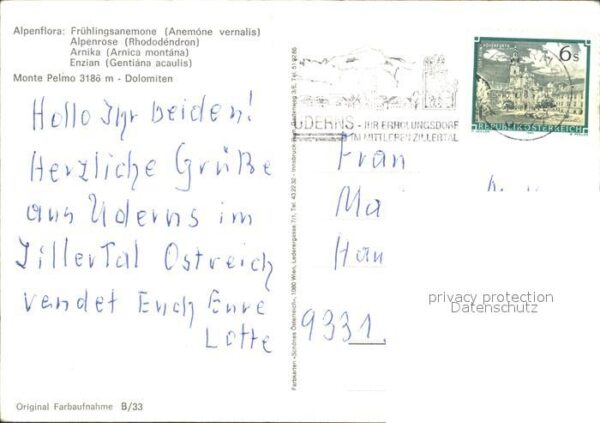 Alpenflora: Frühlingsanemone (Anemóne vernalis)
Alpenrose (Rhododéndron)
Arnika (Arnica montána)
Enzian (Gentiána acaulis)
Monte Pelmo 3186 m - Dolomiten
Hallo Ihr beiden!
Herzliche Grüße
aus Uderns im
Zillertal Ostreich
sendet Euch Eure
Lotte
Original Farbaufnahme B/33
Farbkarten «Schönes Österreich», 1080 Wien, Lederergasse 7/1, Tel. 43 22 32 - Innsbruck,
6s
REPUBLIK ÖSTERREICH
UDERNS - IHR ERHOLUNGSDORF
IM MITTLEREN ZILLERTAL
Frau
Ma
Han
9331.
privacy protection
Datenschutz